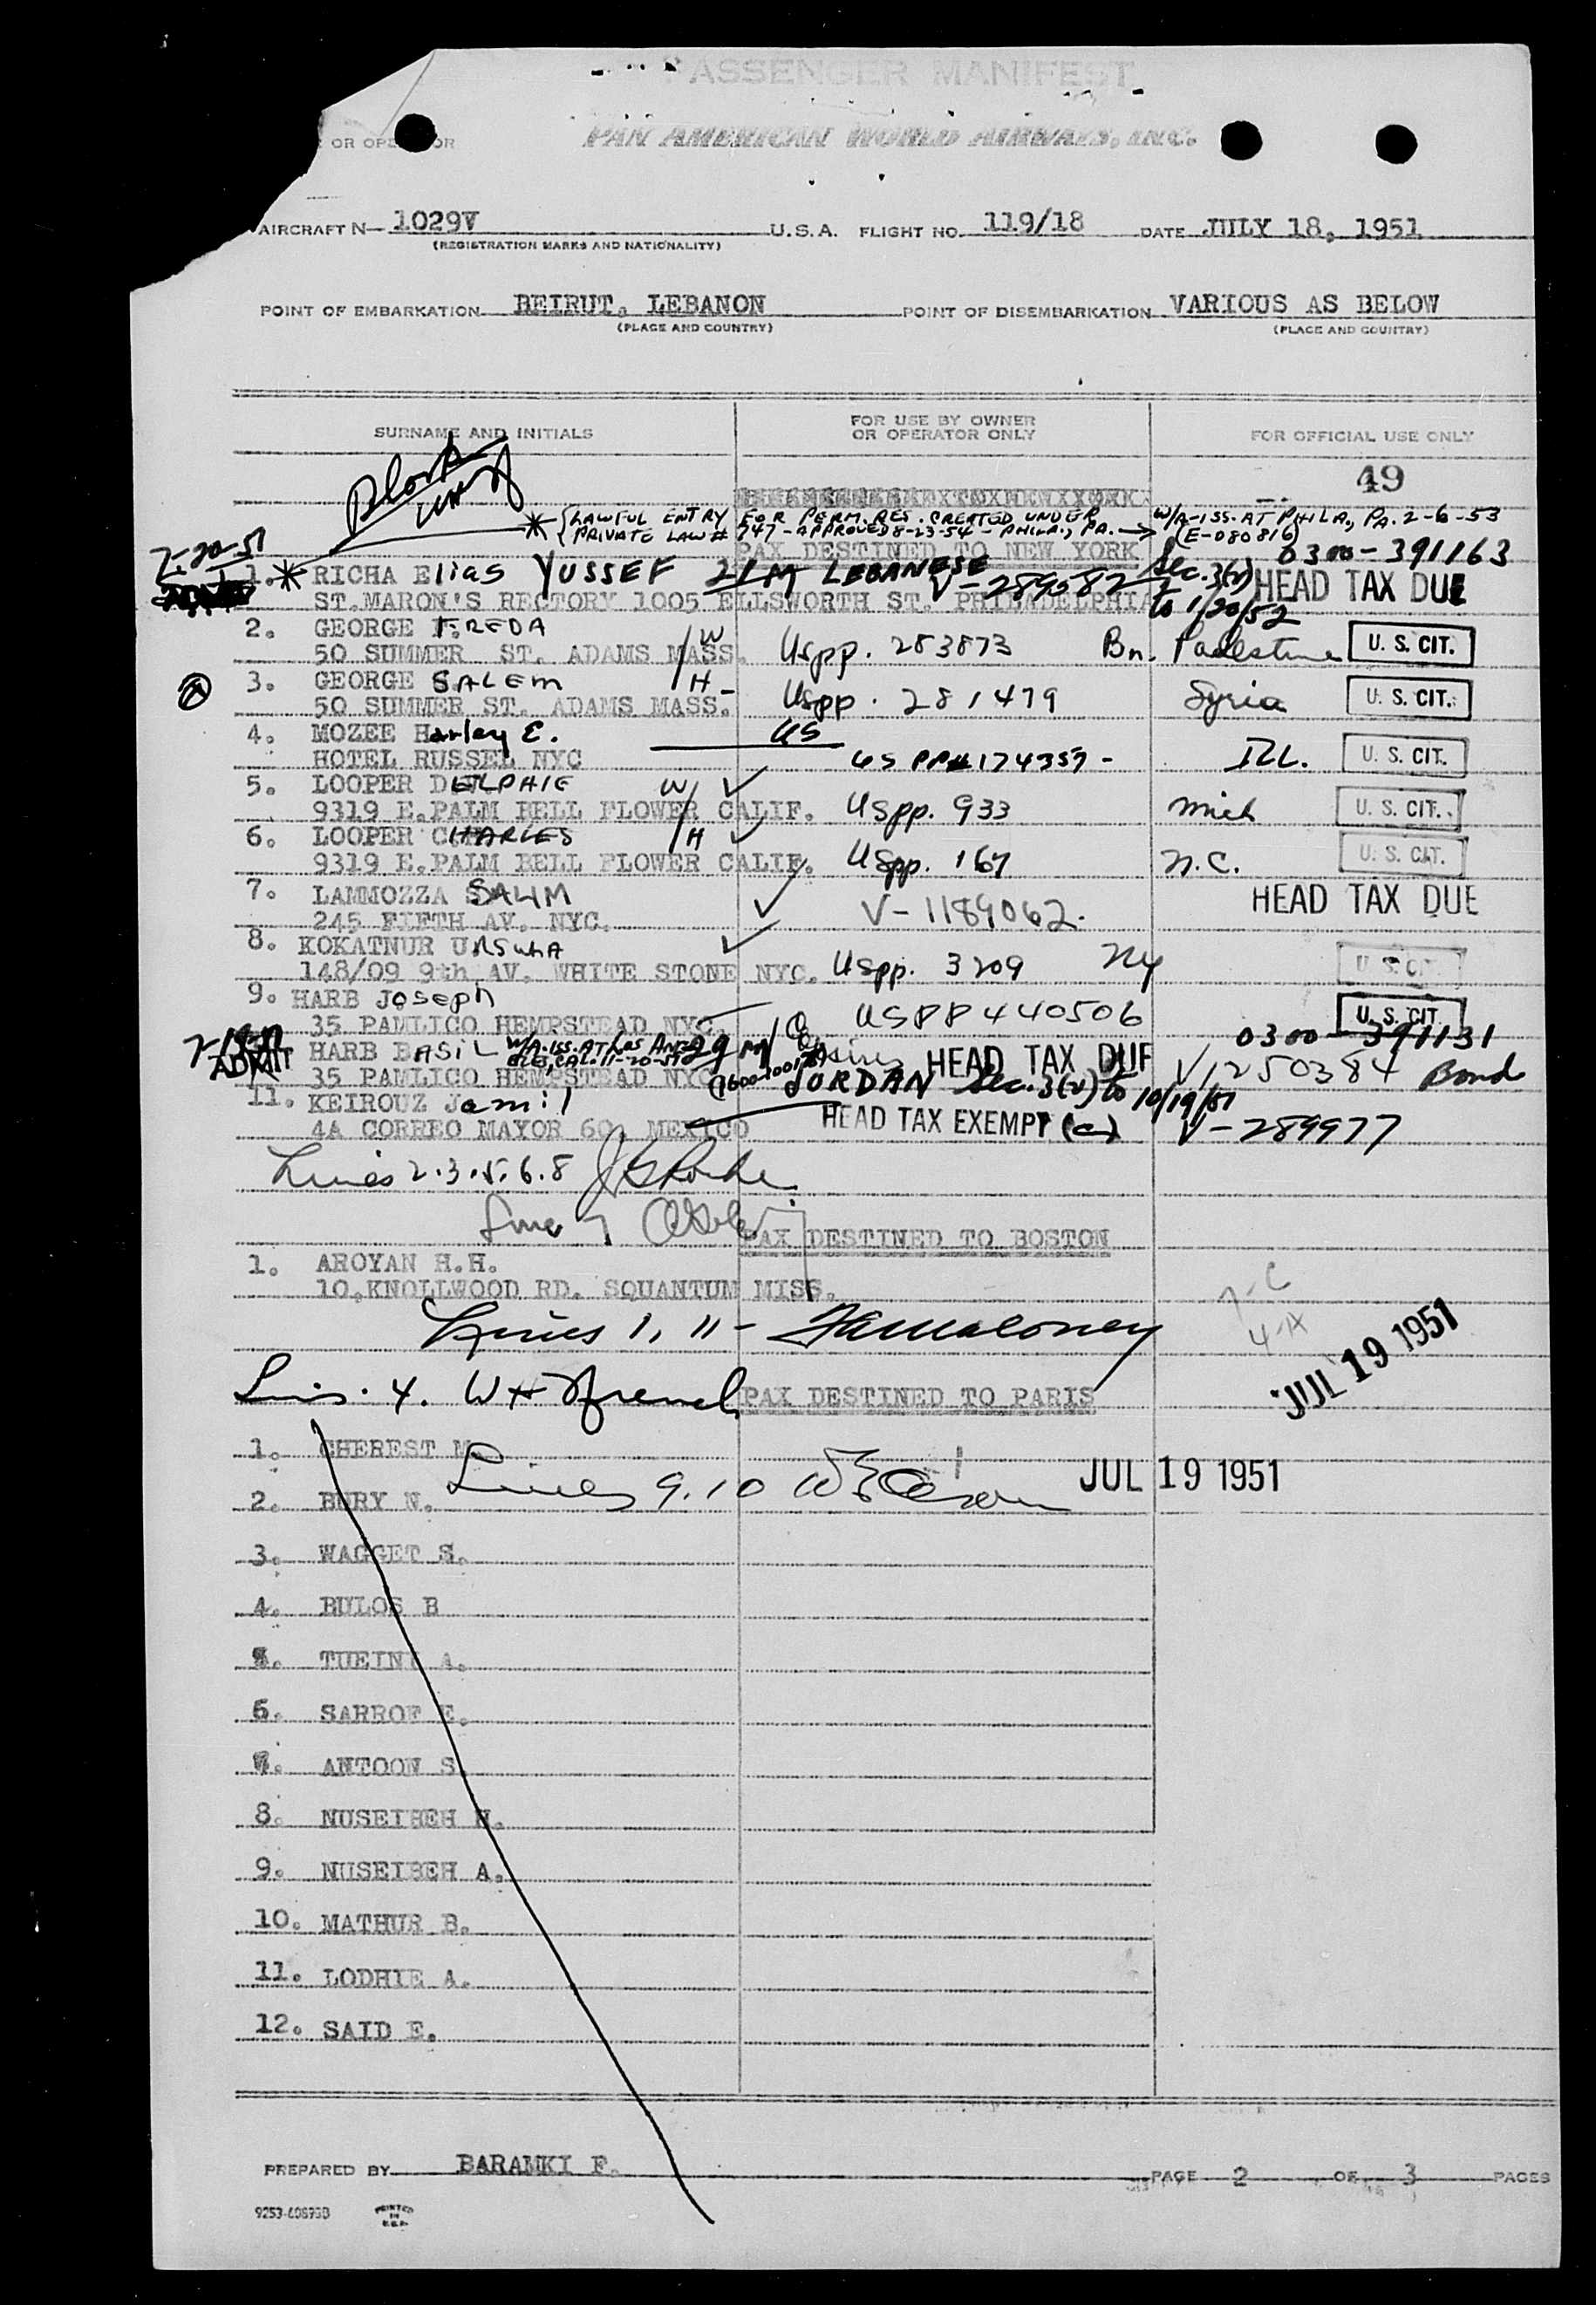 PASSENGER MANIFEST
OR OPERATOR PAN AMERICAN WORLD AIRWAYS, INC.
AIRCRAFT N- 1029V U.S.A. FLIGHT NO. 119/18 DATE JULY 18, 1951
(REGISTRATION MARKS AND NATIONALITY)
POINT OF EMBARKATION BEIRUT, LEBANON POINT OF DISEMBARKATION VARIOUS AS BELOW
(PLACE AND COUNTRY) (PLACE AND COUNTRY)
SURNAME AND INITIALS FOR USE BY OWNER OR OPERATOR ONLY FOR OFFICIAL USE ONLY
49
* {LAWFUL ENTRY FOR PERM. RES. CREATED UNDER W/A-ISS. AT PHILA, PA. 2-6-53
PRIVATE LAW # 747-APPROVED 8-23-54-PHILA., PA. → (E-080816)
7-20-51 PAX DESTINED TO NEW YORK 0300-391163
1. * RICHA Elias YUSSEF 21 M LEBANESE V-289582 Sec. 3(2) HEAD TAX DUE
ST.MARON'S RECTORY 1005 ELLSWORTH ST. PHILADELPHIA to 1/20/52
2. GEORGE FREDA W
50 SUMMER ST. ADAMS MASS. Uspp. 283873 Bn. Palestine U. S. CIT.
3. GEORGE SALEM H
50 SUMMER ST. ADAMS MASS. Uspp. 281479 Syria U. S. CIT.
4. MOZEE Harley E. US
HOTEL RUSSEL NYC US PP# 174357- ILL. U. S. CIT.
5. LOOPER DELPHIE W/ ✓
9319 E.PALM BELL FLOWER CALIF. USpp. 933 Mich U. S. CIT.
6. LOOPER CHARLES /H ✓
9319 E.PALM BELL FLOWER CALIF. USpp. 167 N.C. U. S. CIT.
7. LAMMOZZA SALIM HEAD TAX DUE
245 FIFTH AV. NYC. ✓ V-1189062.
8. KOKATNUR URSULA ✓
148/09 9th AV. WHITE STONE NYC. Uspp. 3209 NY U. S. CIT.
9. HARB Joseph USPP 440506 U. S. CIT.
35 PAMLICO HEMPSTEAD NYC. 0300-391131
ADMIT HARB BASIL W/A.ISS.AT LOS ANG. 29 M HEAD TAX DUE V1250384 Bond
35 PAMLICO HEMPSTEAD NYC JORDAN Sec. 3(2) to 10/19/51
11. KEIROUZ Jamil
4A CORREO MAYOR 60 MEXICO HEAD TAX EXEMPT V-289977
Lines 2.3.5.6.8
Line 7
PAX DESTINED TO BOSTON
1. AROYAN H.H.
10,KNOLLWOOD RD. SQUANTUM MISS.
Lines 1, 11 - Maloney
JUL 19 1951
Line 4. WH French PAX DESTINED TO PARIS
1. CHEREST M.
Lines 9.10 JUL 19 1951
2. BURY N.
3. WAGGET S.
4. BULOS B
5. TUEINI A.
6. SARROF E.
7. ANTOON S.
8. NUSEIBEH H.
9. NUSEIBEH A.
10. MATHUR B.
11. LODHIE A.
12. SAID E.
PREPARED BY BARAMKI F. PAGE 2 OF 3 PAGES
PRINTED IN U.S.A.